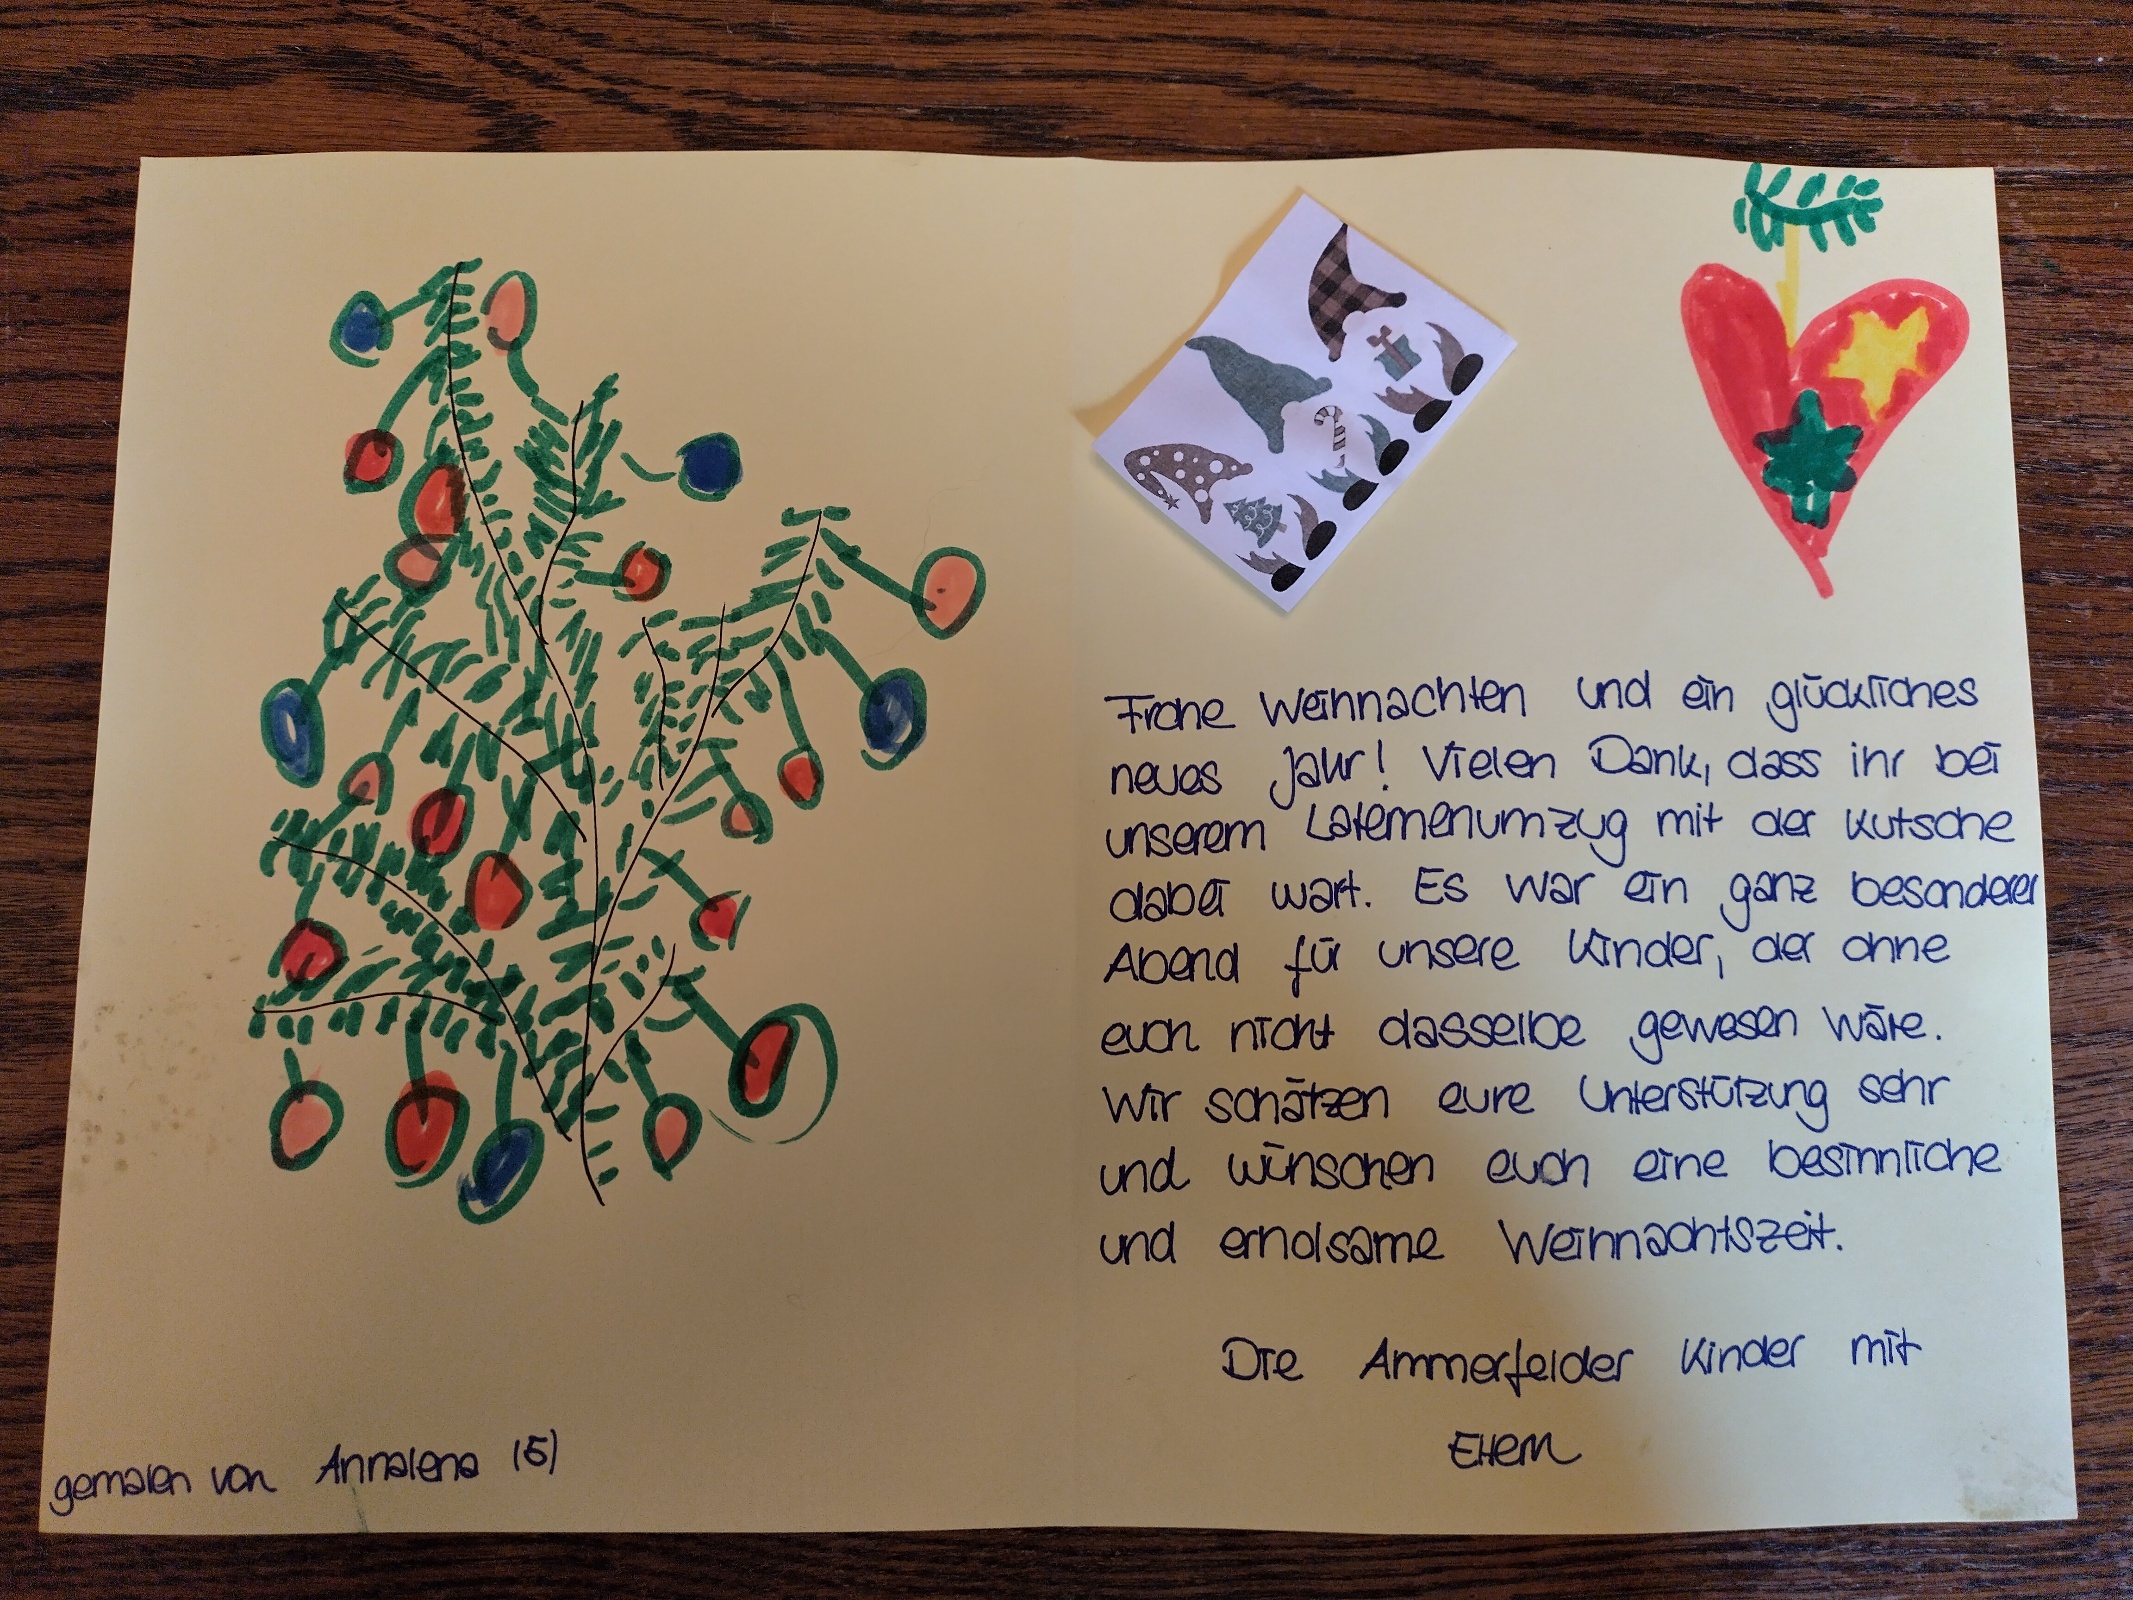 Frohe Weihnachten und ein glückliches
neues Jahr! Vielen Dank, dass ihr bei
unserem Laternenumzug mit der Kutsche
dabei wart. Es war ein ganz besonderer
Abend für unsere Kinder, der ohne
euch nicht dasselbe gewesen wäre.
Wir schätzen eure Unterstützung sehr
und wünschen euch eine besinnliche
und erholsame Weihnachtszeit.
Die Ammerfelder Kinder mit
Eltern
gemalen von Annalena (5)